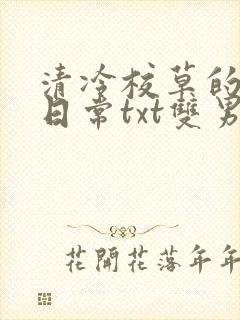 清冷校草的
日常txt雙男
花開花落年年